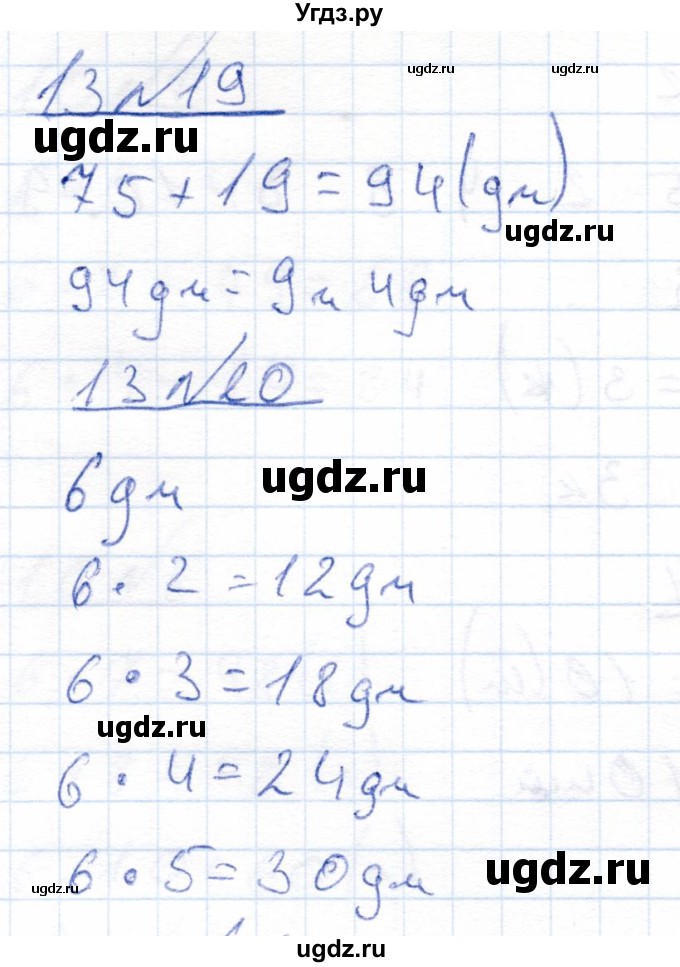 Угдз.ру
13 №19
ugdz.ru
ugdz.ru
ugdz.ru
75 + 19 = 94 (дм)
ugdz.ru
94 дм = 9 м 4 дм
13 №20
6 дм
ugdz.ru
6 · 2 = 12 дм
6 · 3 = 18 дм
ugdz.ru
6 · 4 = 24 дм
6 · 5 = 30 дм
ugdz.ru
ugdz.ru
ugdz.ru